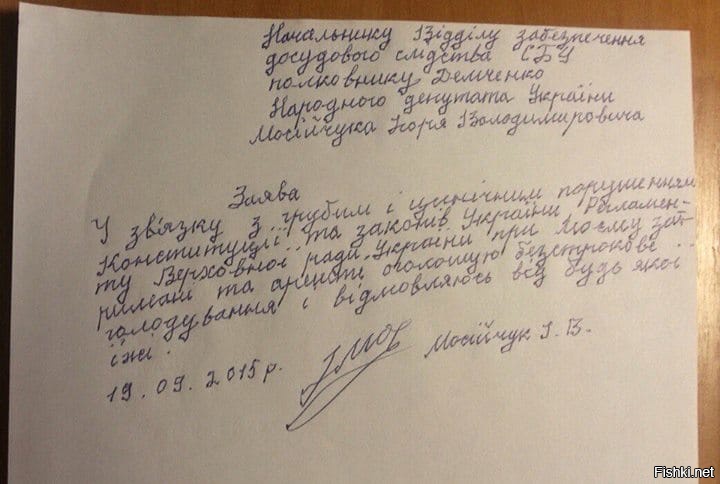 Начальнику Відділу забезпечення
досудового слідства СБУ
полковнику Демченко
Народного депутата України
Мосійчука Ігоря Володимировича
Заява
У зв'язку з грубим і цинічним порушенням
Конституції та законів України Регламен-
ту Верховної ради України при моєму зат-
риманні та арешті оголошую безстрокове
голодування і відмовляюсь від будь якої
їжі.
19.09.2015р.
Мосійчук І.В.
Fishki.net